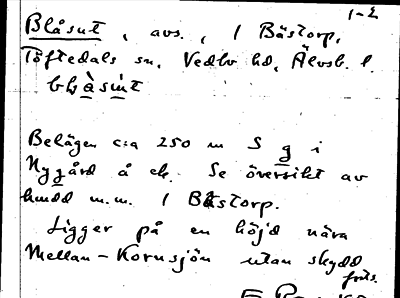 1-2
Blåsut, avs., 1 Bästorp,
Töftedals sn, Vedbo hd, Älvsb. l.
Belägen c:a 250 m S g i
Nygård å ek. Se översikt av
hmdd m.m. 1 Bästorp.
Ligger på en höjd nära
Mellan-Kornsjön utan skydd
forts.